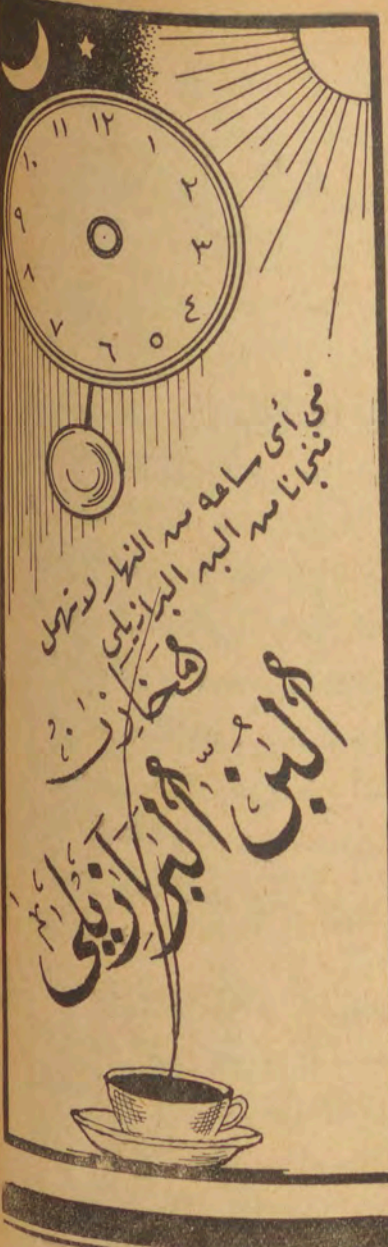 ١٢
١
٢
٣
٤
٥
٦
٧
٨
٩
١٠
١١
فى أى ساعة من النهار لا تهمل
فنجانا من البن البرازيلى
مخازن
البُنّ
البرازيلى